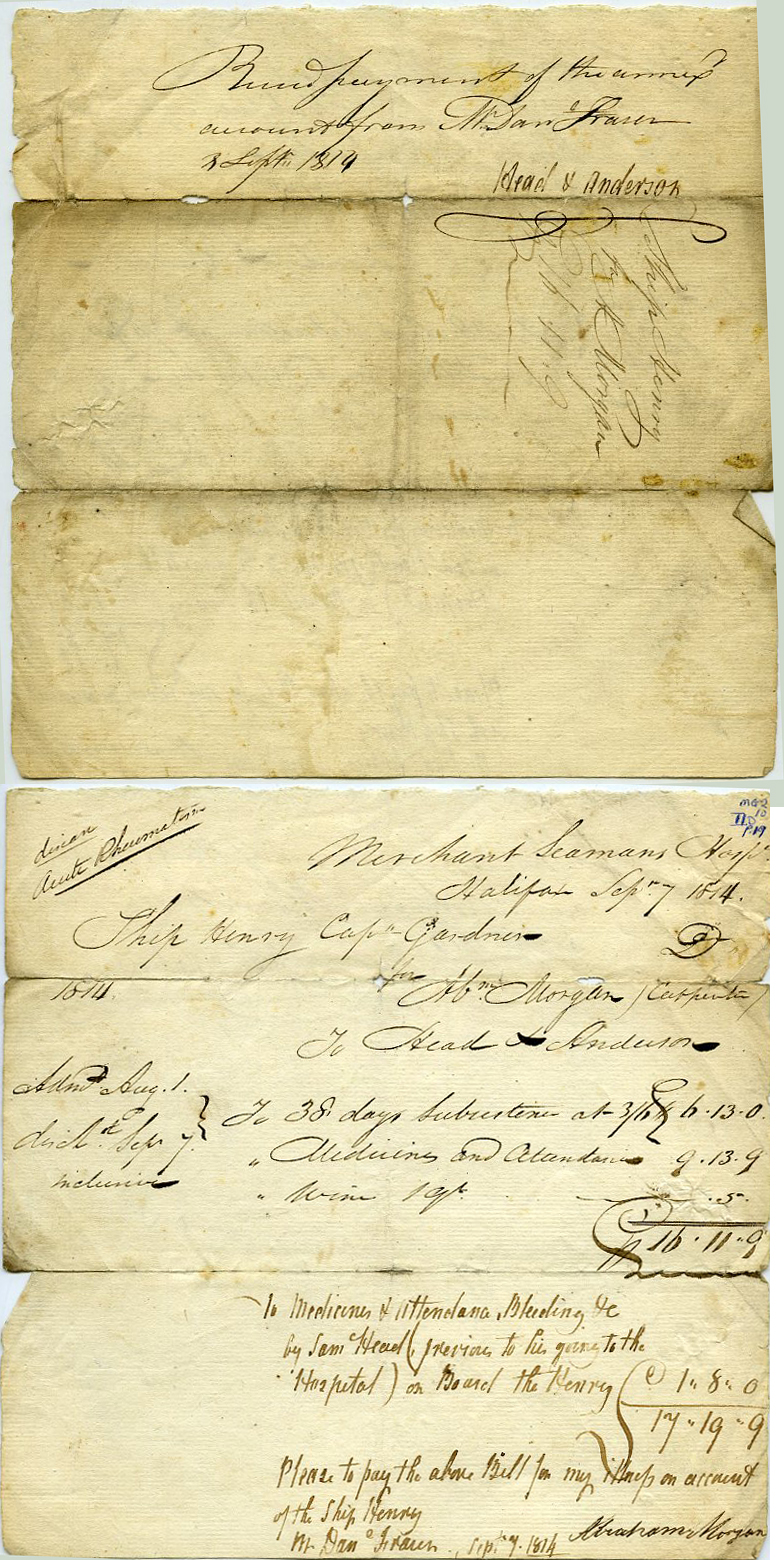 Recd payment of the annexd
account from Mr Danl Fraser
Septr 1814
Head & Anderson
Ship Henry
for A Morgan
Merchant Seamans Hospl
Halifax Sepr 7 1814.
disease
Acute Rheumatism
MG 2
10
P19
Ship Henry Capn Gardner Dr
1814. for Abm Morgan (Carpenter)
To Head & Anderson
Admd Aug. 1.
dischd Sepr 7.
inclusive
To 38 days Subsistence at 3/6 £ 6.13.0.
" Medicines and Attendance 9.13.9
" Wine 1 qt. .5.
£ 16.11.9
To Medicines & Attendance, Bleeding &c
by Saml Head (previous to his going to the
Hospital) on Board the Henry 1"8"0
17"19"9
Please to pay the above Bill for my illness on account
of the Ship Henry
Mr Danl Fraser, Sepr 7. 1814 Abraham Morgan